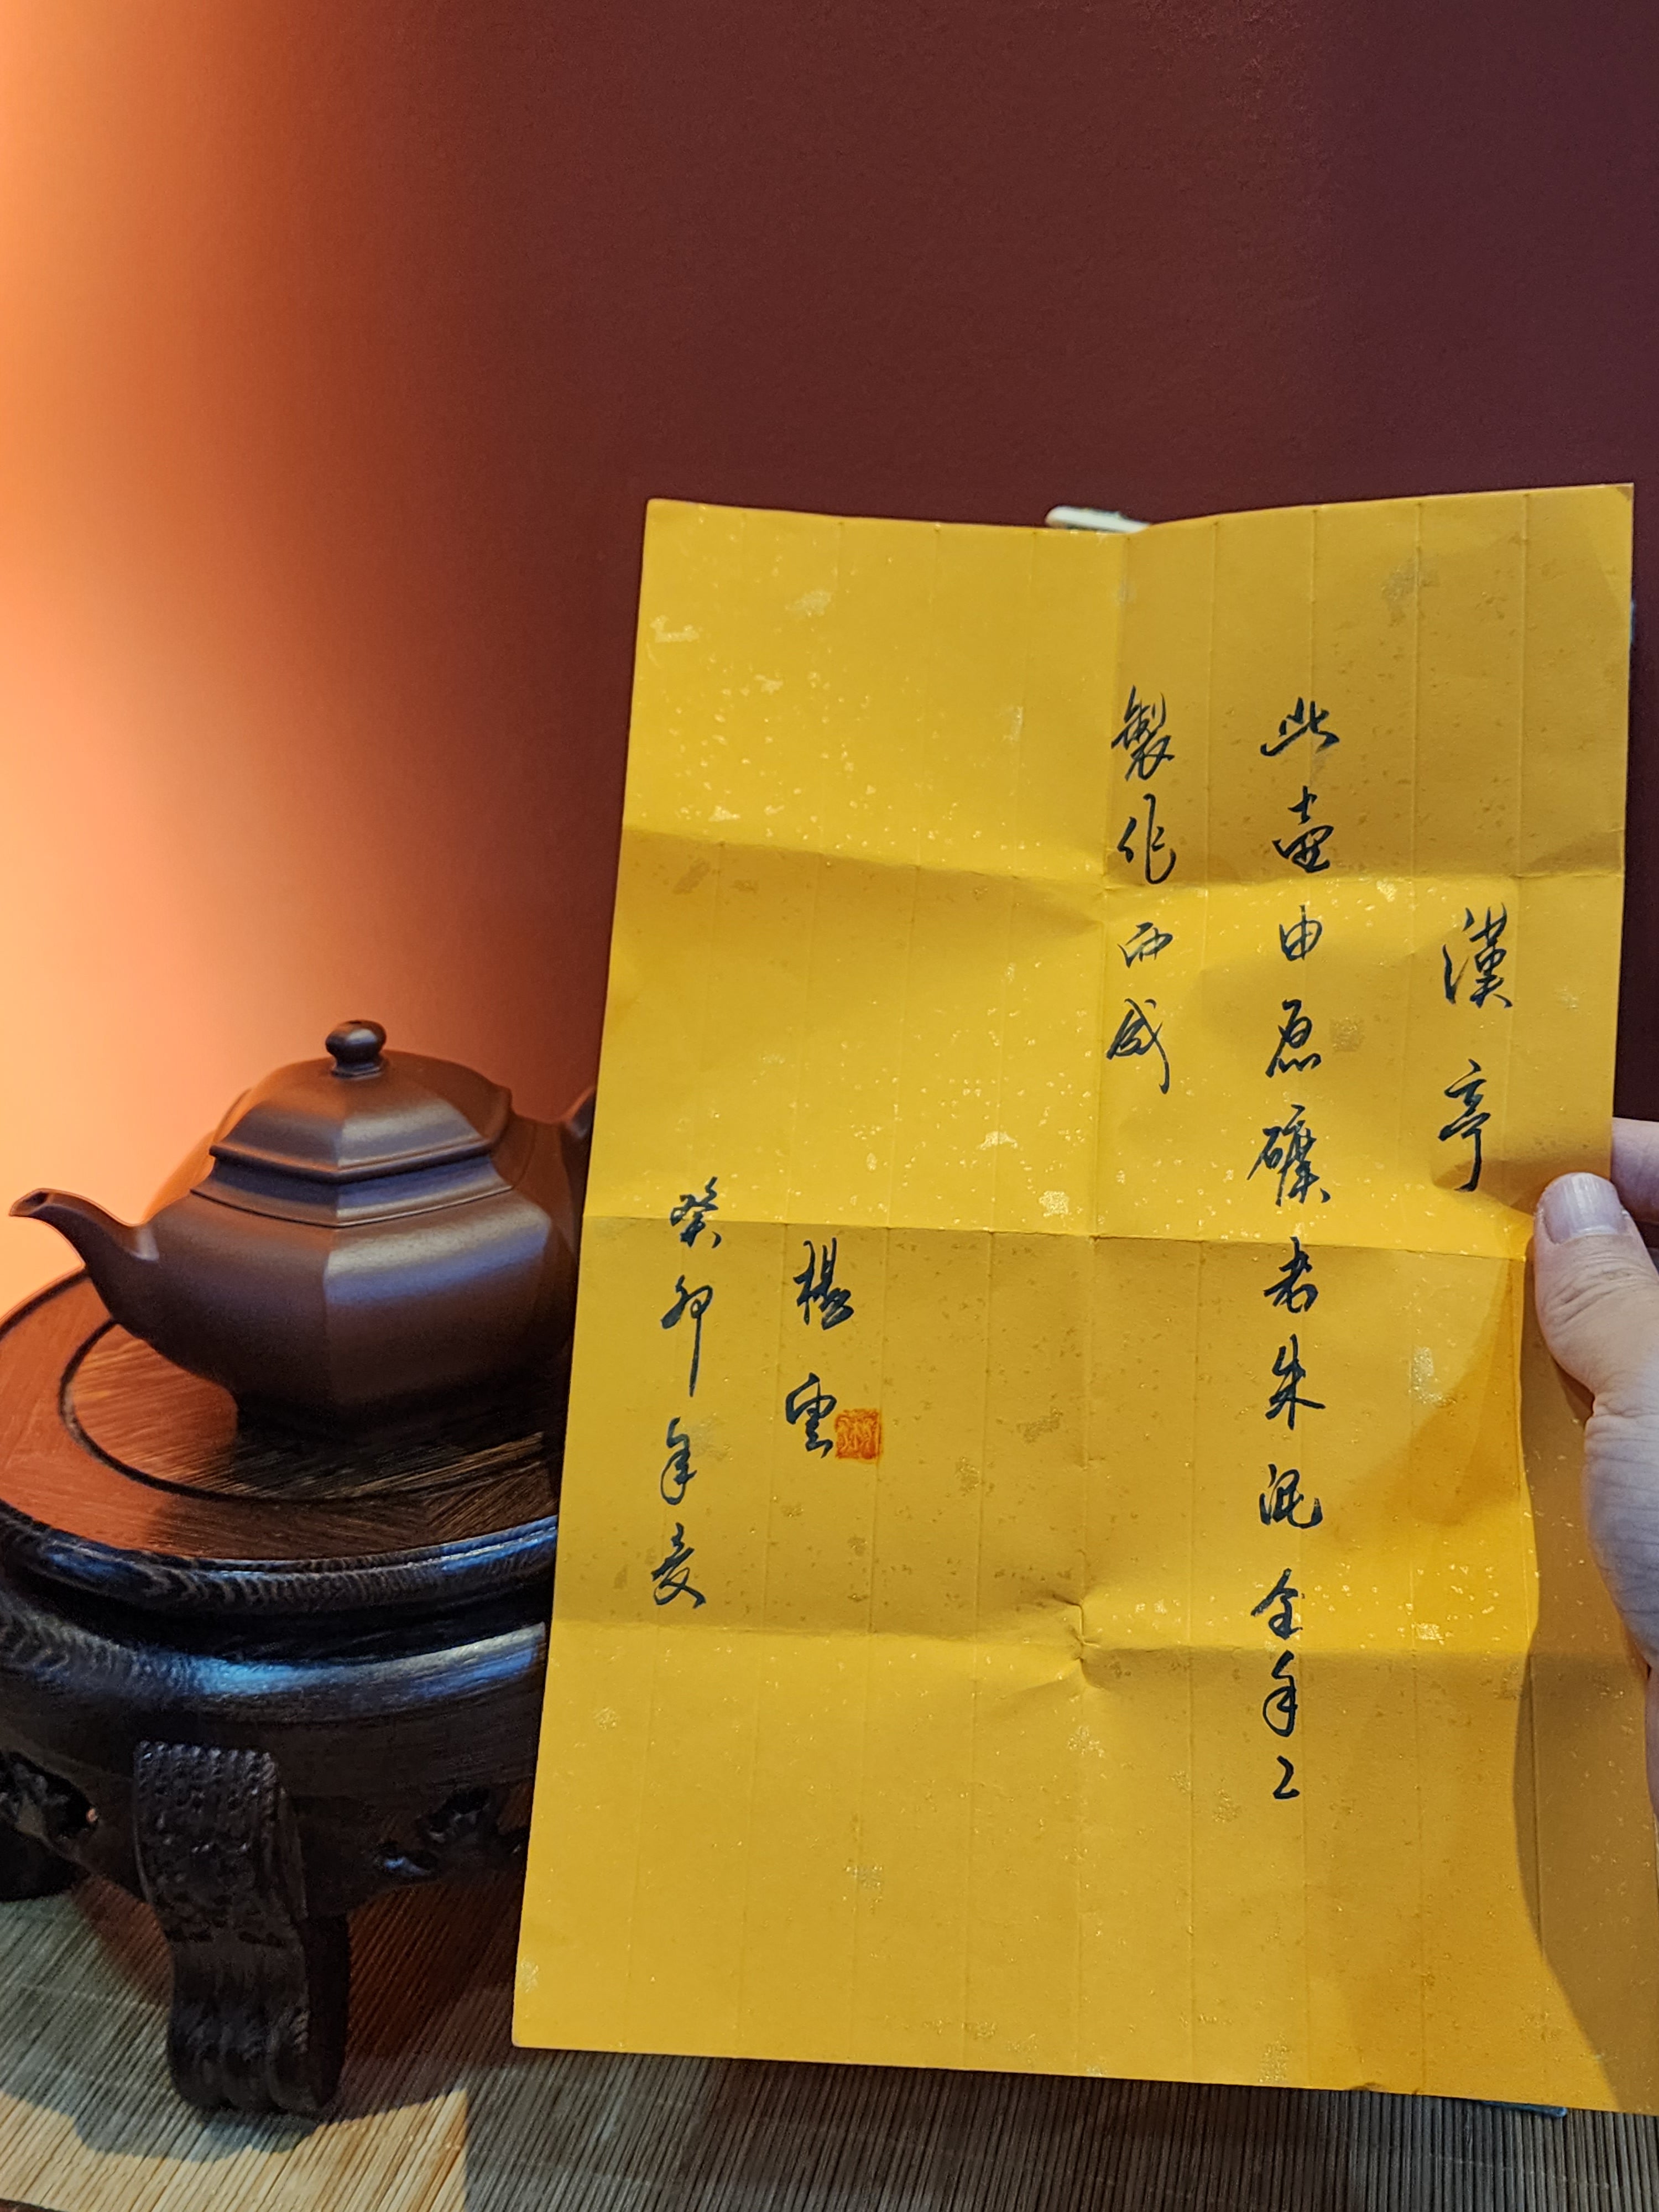 漢亭
此壺由原礦老朱泥全手工
製作而成
楊雲
癸卯年夏